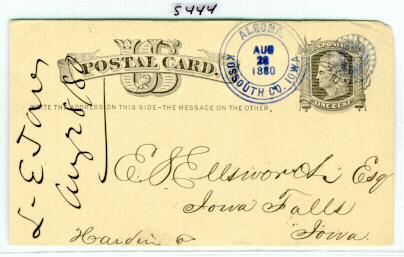 5444
US
POSTAL CARD.
WRITE THE ADDRESS ON THIS SIDE-THE MESSAGE ON THE OTHER
ALGONA,
AUG
28
1880
KOSSOUTH CO. IOWA
ONE CENT
E S Ellsworth Esq
Iowa Falls
Iowa.
Hardin Co
L-E
Aug 28/80